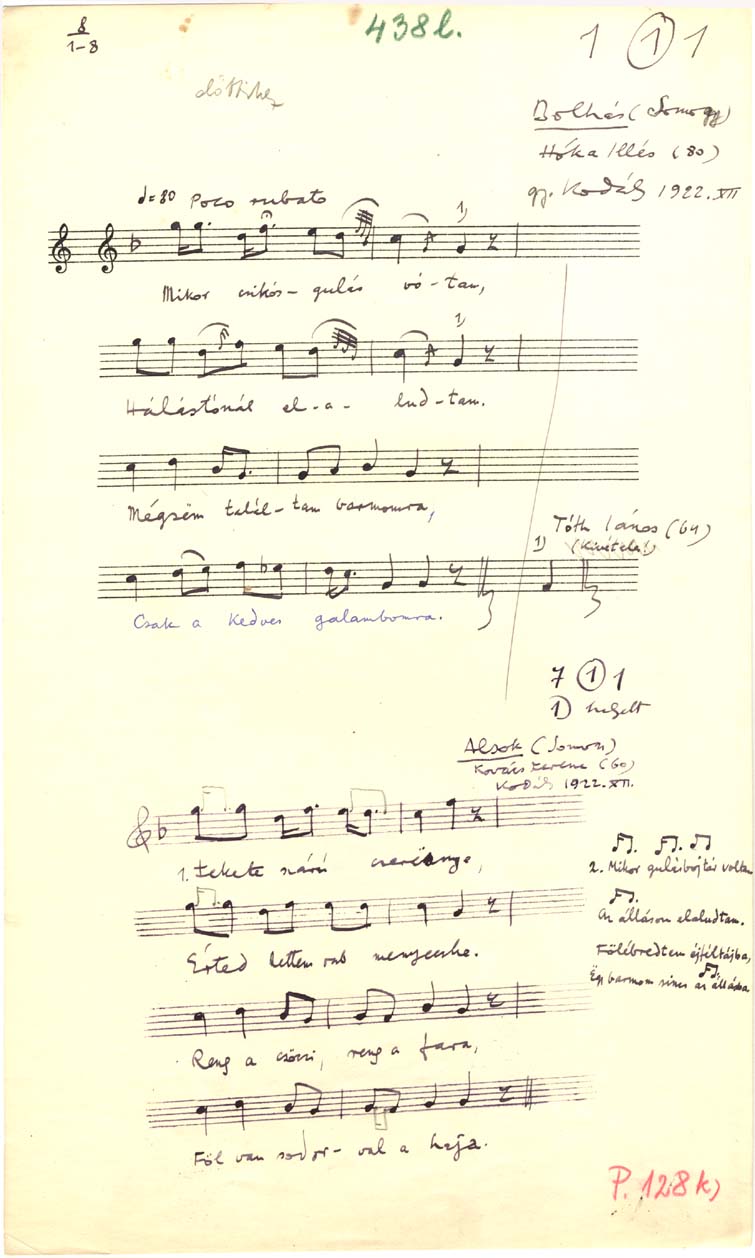 8
1-8
438l.
1 1 1
Bolhás (Somogy)
Hóka Illés (80)
gy. Kodály 1922. XII
♩=80 Poco rubato
1)
Mikor csikós-gulás vó-tam,
1)
Hálástónál el-a-lud-tam.
Mégsëm talál-tam barmomra,
Tóth János (64)
1) (Kivétele!)
Csak a kedves galambomra.
7 1 1
1) helyett
Alsok (Somogy)
Kovács Ferenc (60)
Kodály 1922. XII.
1. Fekete szárú cseresnye,
2. Mikor gulásbojtár voltam
Az álláson elaludtam.
Fölébredtem éjféltájba,
Ëgy barmom sincs az állásba
Érted lettem rab menyecske.
Reng a csöcsi, reng a fara,
Föl van sodor-val a haja.
P. 128k)